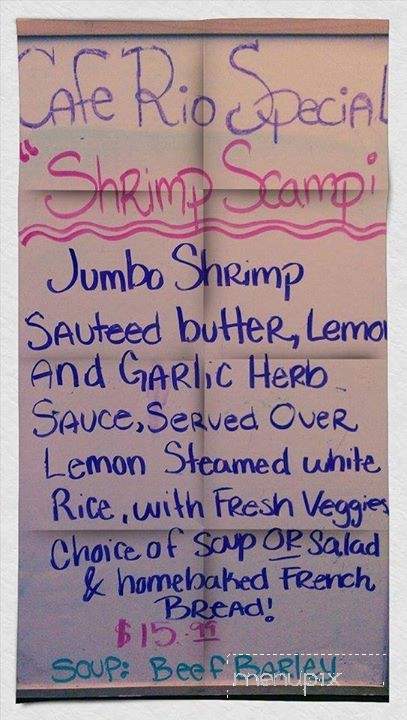 Cafe Rio Special
"Shrimp Scampi
Jumbo Shrimp
Sauteed butter, Lemon
And Garlic Herb
Sauce, Served Over
Lemon Steamed white
Rice, with Fresh Veggies
Choice of Soup OR Salad
& homebaked French
Bread!
$15.95
Soup: Beef Barley
menupix